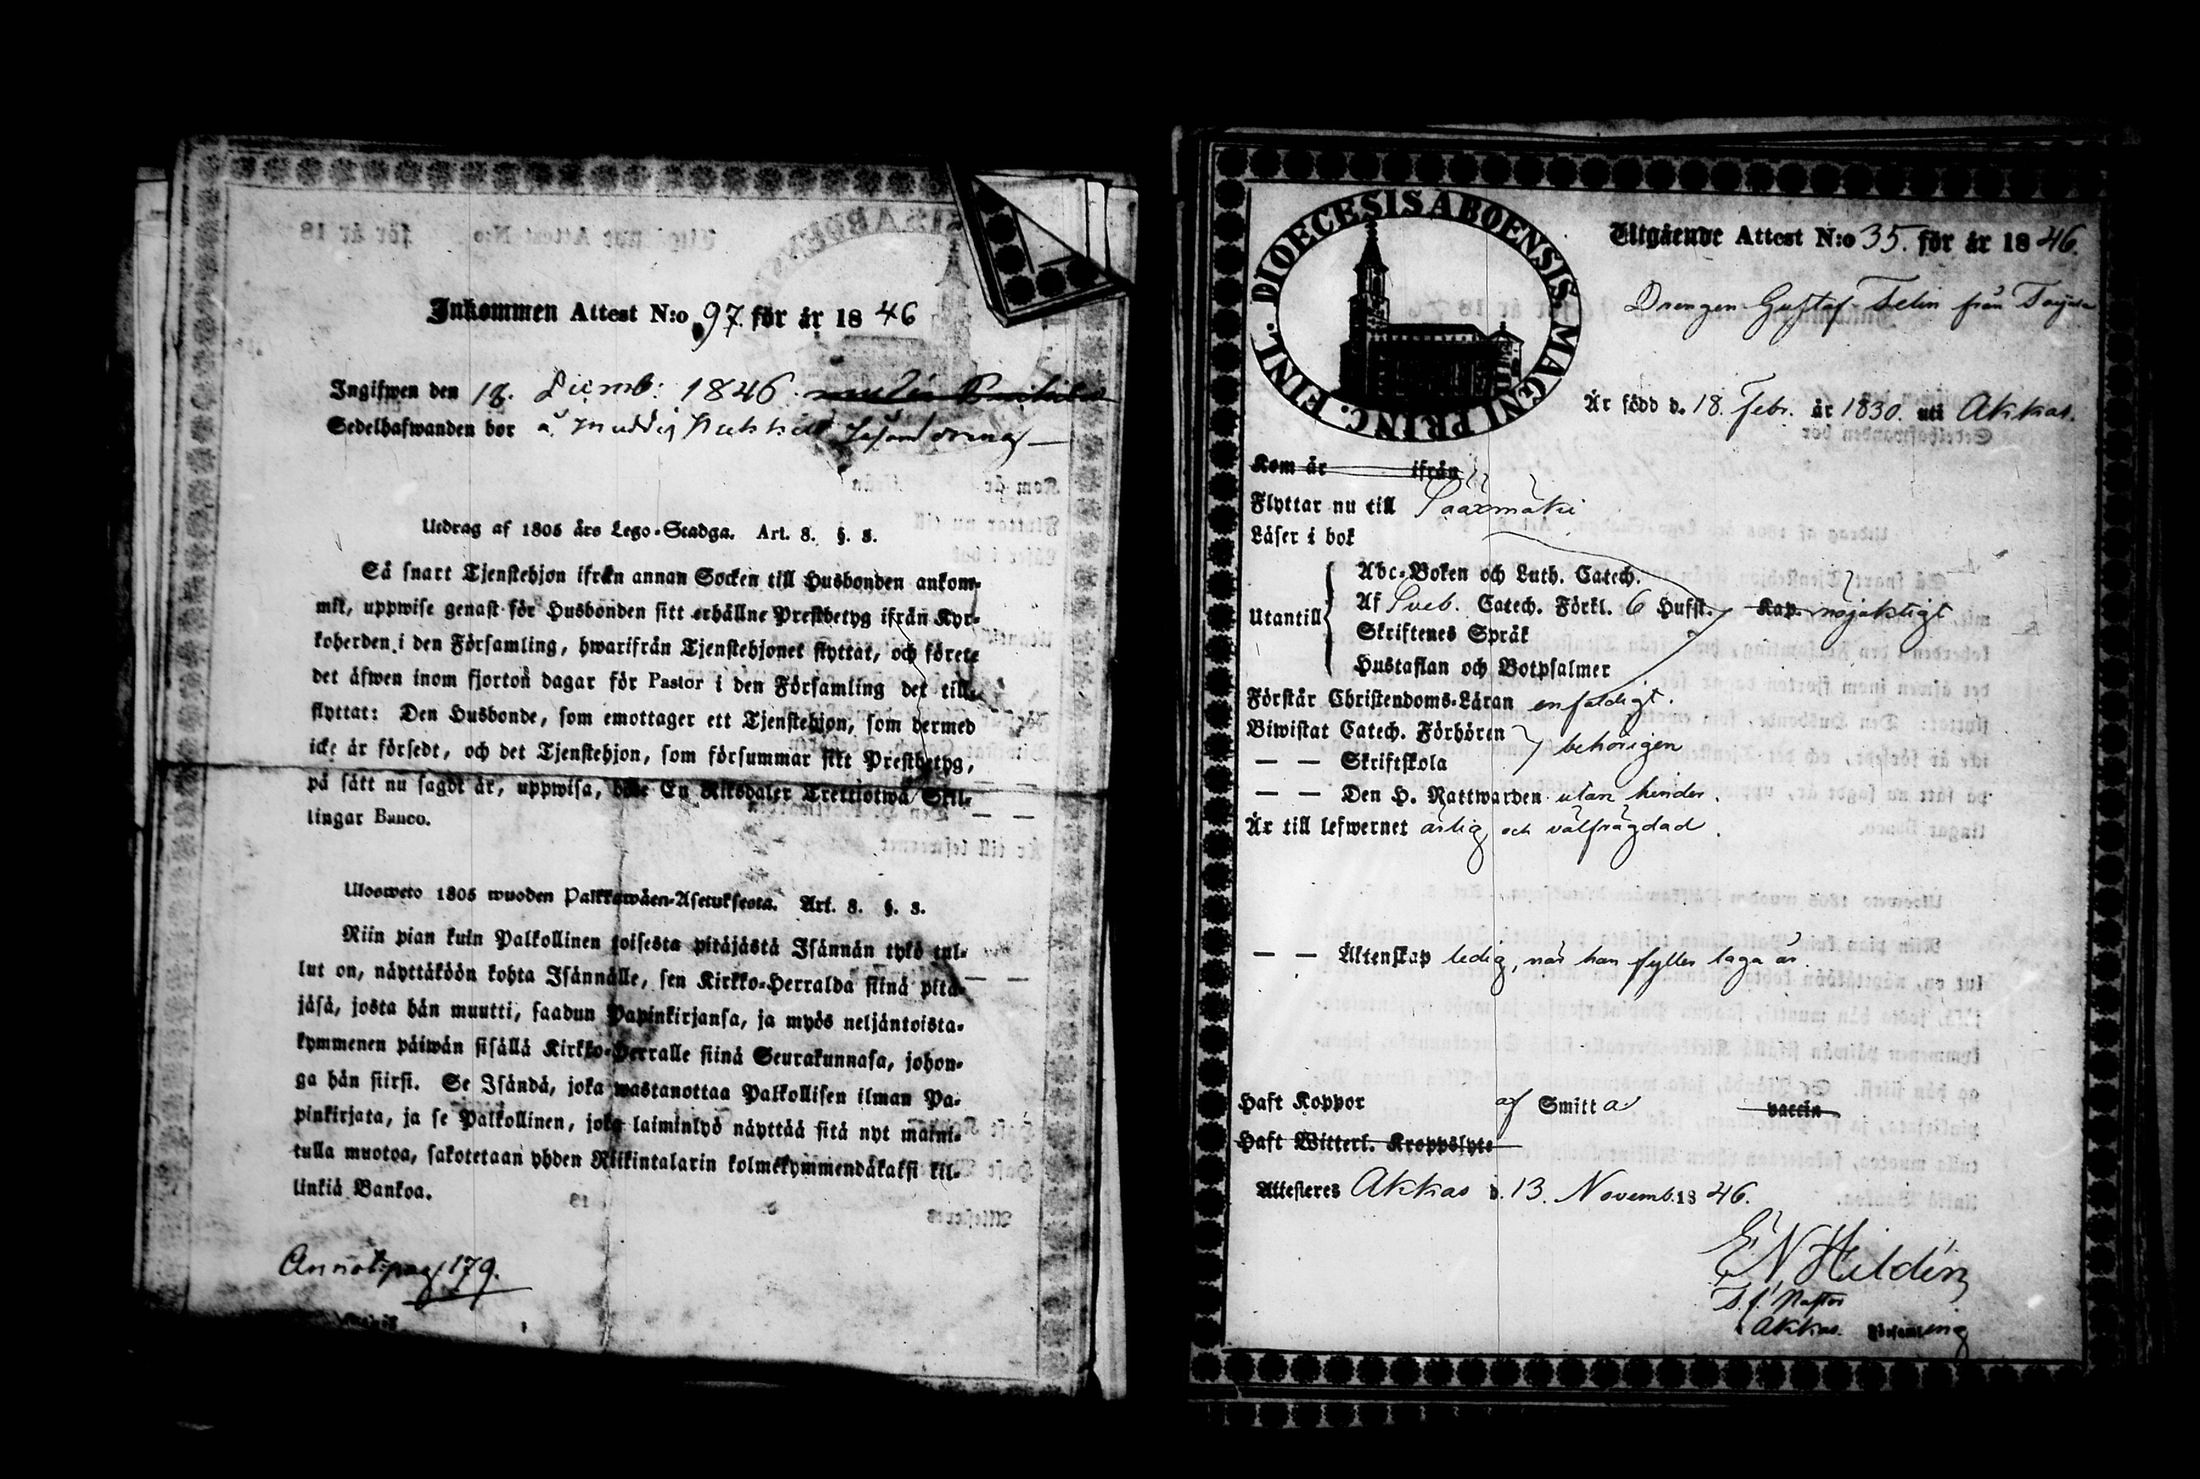 Inkommen Attest N:o 97. för år 1846
Ingifwen den 18. Decemb: 1846.
Sedelhafwanden bor å
Utdrag af 1805 års Lego-Stadga. Art. 8. §. 3.
Så snart Tjenstehjon ifrån annan Socken till Husbonden ankom-
mit, uppwise genast för Husbonden sitt erhållne Prestbetyg ifrån Kyr-
koherden i den Församling, hwarifrån Tjenstehjonet flyttat, och förete
det äfwen inom fjorton dagar för Pastor i den Församling det till-
flyttat: Den Husbonde, som emottager ett Tjenstehjon, som dermed
icke är försedt, och det Tjenstehjon, som försummar sitt Prestbetyg,
på sätt nu sagdt är, uppwisa, böte En Riksdaler Trettiotwå Skil-
lingar Banco.
Ulosweto 1805 wuoden Palkkawäen-Asetuksesta. Art. 8. §. 3.
Niin pian kuin Palkollinen toisesta pitäjästä Isännän tykö tul-
lut on, näyttäköön kohta Isännälle, sen Kirkko-Herralda siinä pitä-
jäsä, josta hän muutti, saadun Papinkirjansa, ja myös neljäntoista-
kymmenen päiwän sisällä Kirkko-Herralle siinä Seurakunnasa, johon-
ga hän siirsi. Se Isändä, joka wastanottaa Palkollisen ilman Pa-
pinkirjata, ja se Palkollinen, joka laiminlyö näyttää sitä nyt maini-
tulla muotoa, sakotetaan yhden Riikintalarin kolmekymmendäkaksi kil-
linkiä Bankoa.
Annot. pag. 179.
DIOECESIS ABOENSIS MAGNI PRINC. FINL.
Utgående Attest N:o 35. för år 1846.
Drengen Gustaf Felin från
Är född d. 18. Febr. år 1830. uti Akkas.
Kom år ifrån
Flyttar nu till Sääxmäki
Läser i bok
Abc-Boken och Luth. Catech.
Utantill Af Sveb. Catech. Förkl. 6 Hufst. Kap. nöjaktigt
Skriftenes Språk
Hustaflan och Botpsalmer
Förstår Christendoms-Läran enfaldigt.
Biwistat Catech. Förhören behörigen
— — Skriftskola
— — Den H. Nattwarden utan hinder.
Är till lefwernet ärlig och välfrägdad.
— — Äktenskap ledig, när han fyller laga år.
Haft Koppor af Smitta vaccin
Haft Witterl. Kroppslyte
Attesteras Akkas d. 13. Novemb. 1846.
E N Hildén
T. f. Pastor
i Akkas